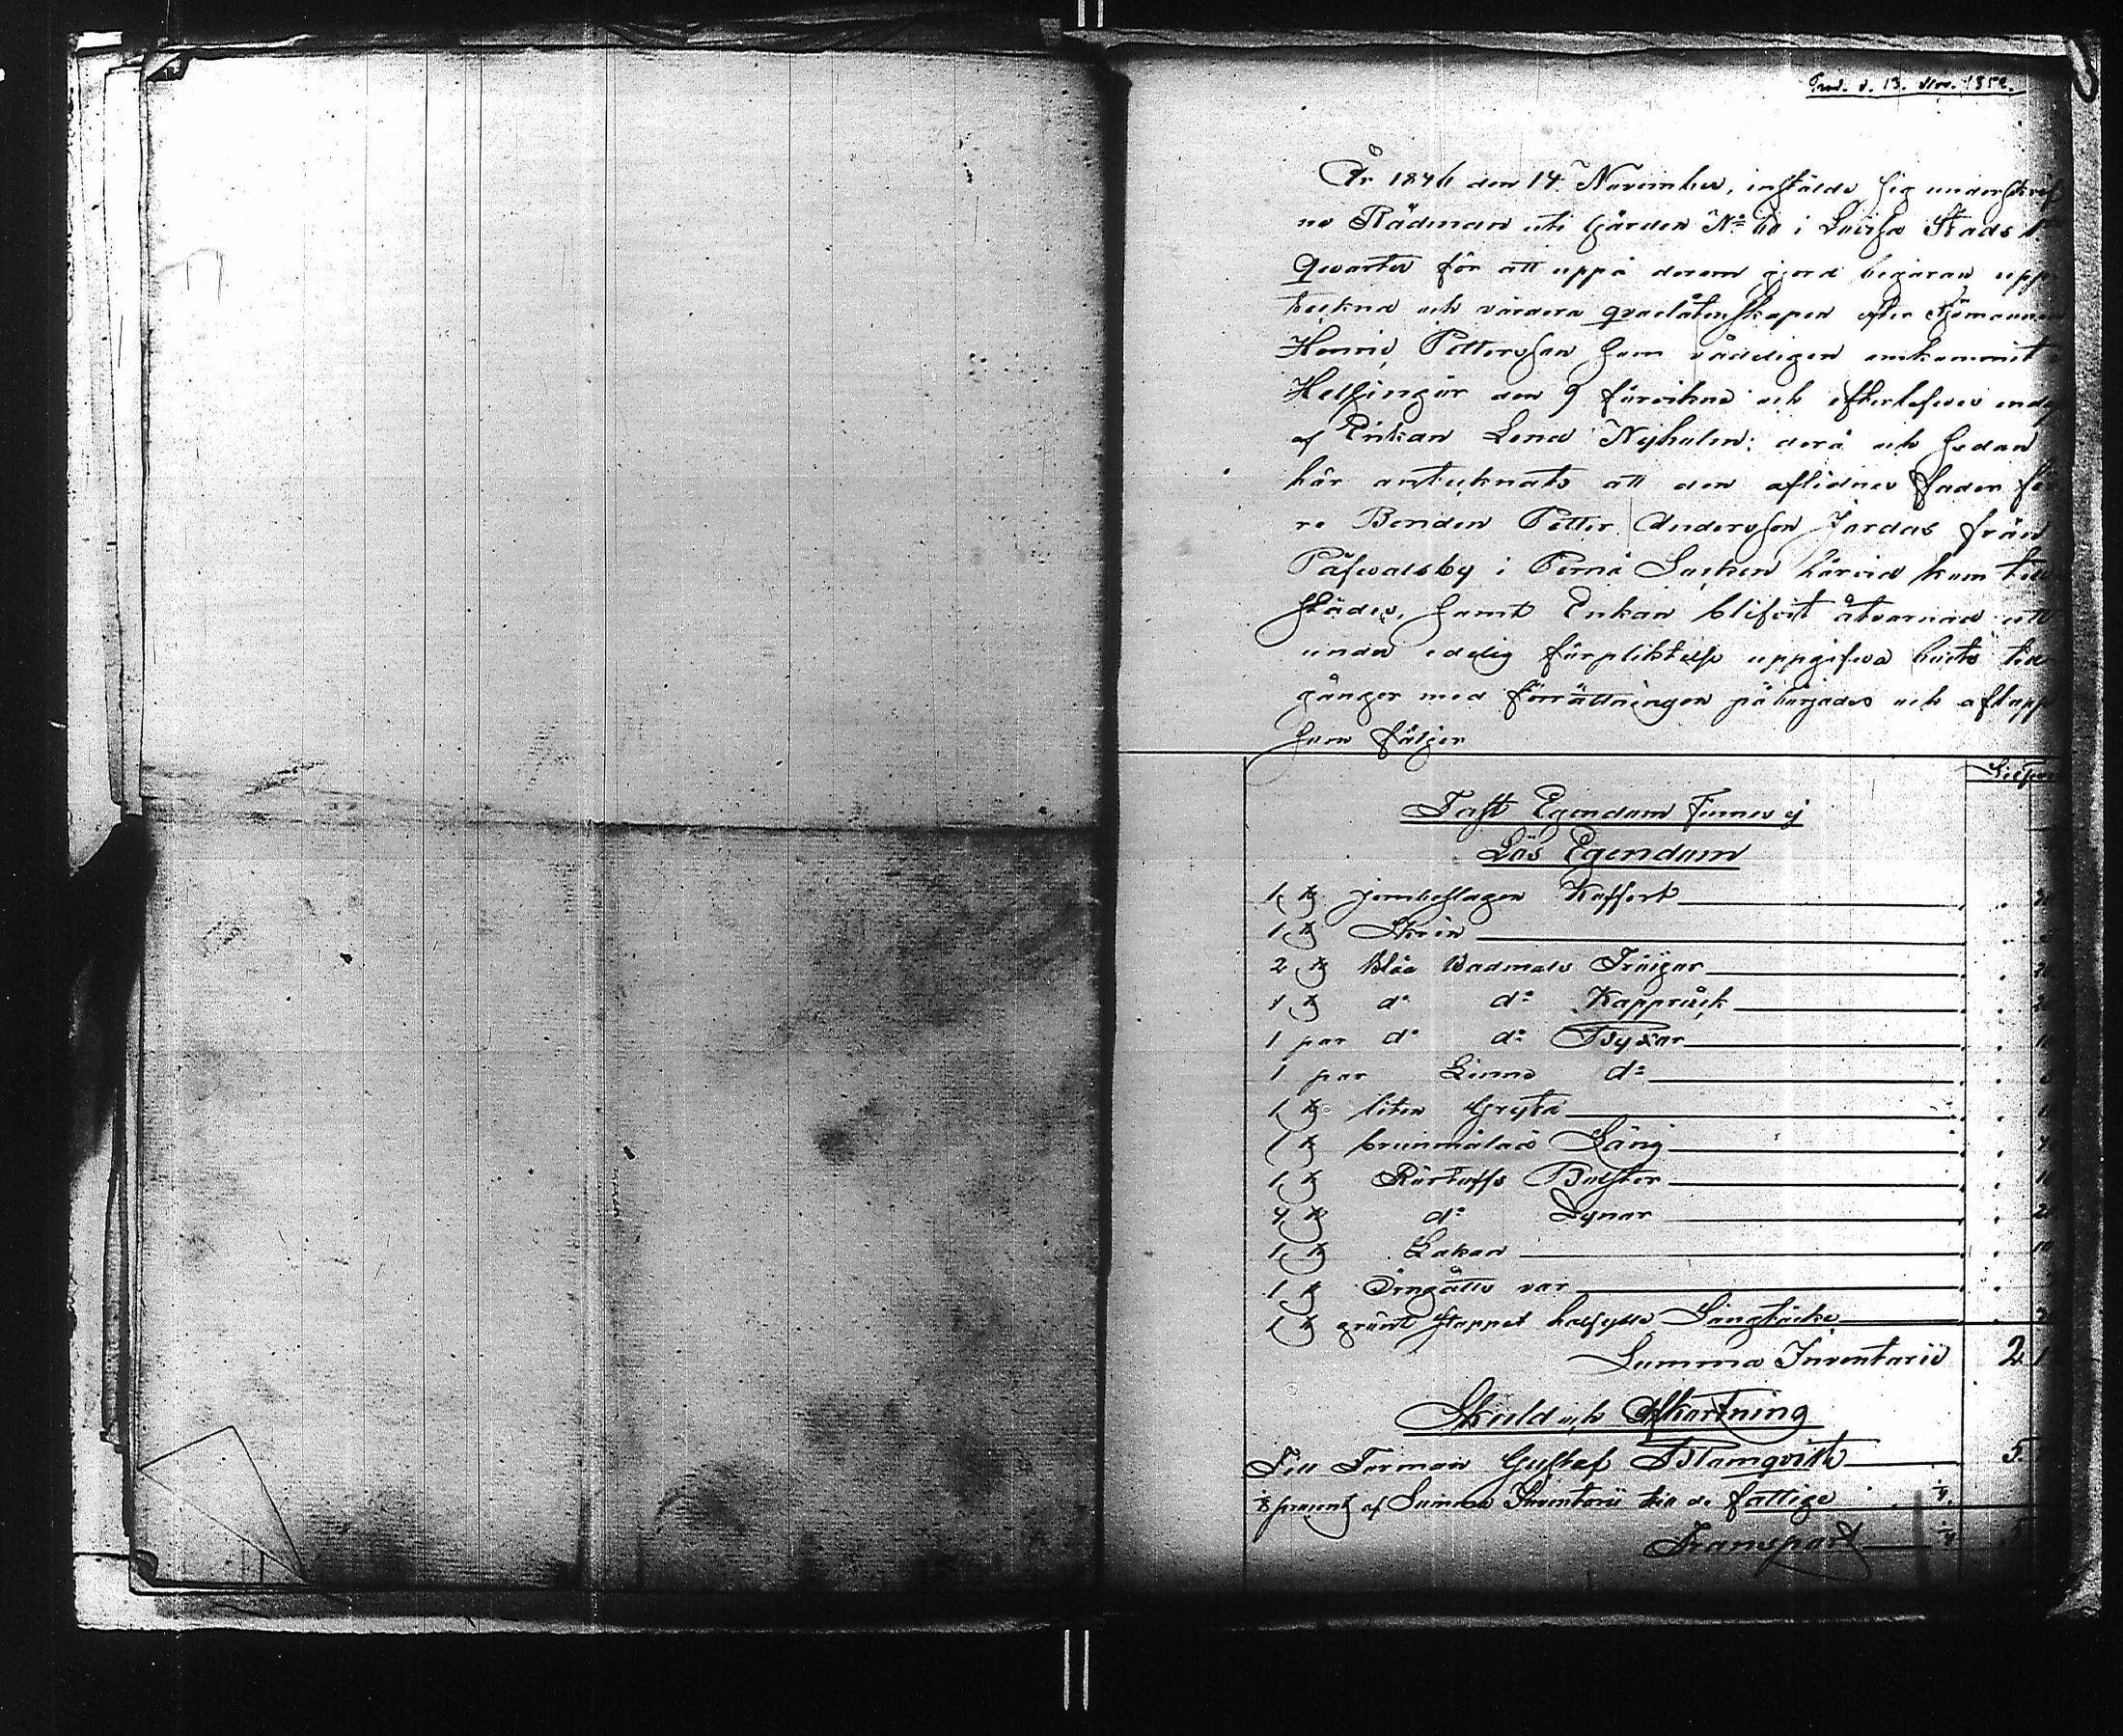 Prod. d. 13. Nov. 1852.
År 1846 den 14 November, instälde sig underskref
ne Rådman uti Gården No 60 i Lovisa Stads 1
Qvarter för att uppå derom gjord begäran upp
teckna och värdera qvarlåtenskapen efter Sjömannen
Henric Pettersson som vådeligen omkommit
Helsingör den 9 sistvikne och efterlefves endas
af Enkan Lena Nyholm; derå och sedan
här antecknats att den aflidnes fader för
re Bonden Petter Andersson Jordas från
Påsvalsby i Perno Socken härvid kom till
städes, samt Enkan blifvit åtvarnad att
under edelig förpliktelse uppgifva boets till
gångar med förrättningen påbörjades och aflopp
som följer
Silfver
Fast Egendom Finnes ej
Lös Egendom
1 st jernbeslagen Koffert
1 st Skrin
2 st blåa Vadmals Tröijor
1 st do do Kapprock
1 par do do Byxor
1 par Linne do
1 st liten Gryta
1 st brunmålad Säng
1 st Bolster
4 st do Dynor
1 st Lakan
1 st Örngåtts var
1 st grönt stoppat halfylle Sängtäcke
Summa Inventarii 2 1
Skuld och Afkortning
Till Forman Gustaf Blomqvist 5
procent af Summa Inventarii till de fattige
Transport 5